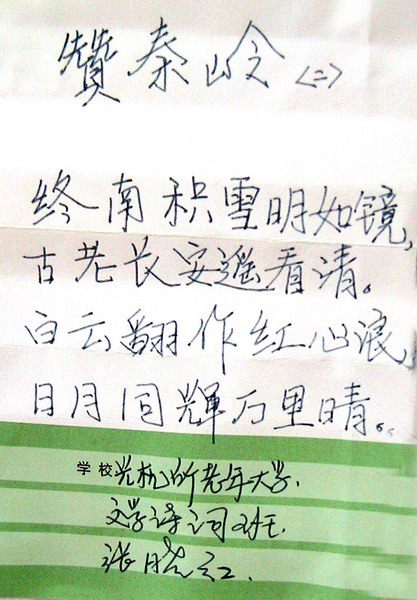 赞秦岭〈二〉
终南积雪明如镜，
古老长安遥看清。
白云翻作红心浪，
日月同辉万里晴。
学校光机所老年大学.
文学诗词班.
张晓红.